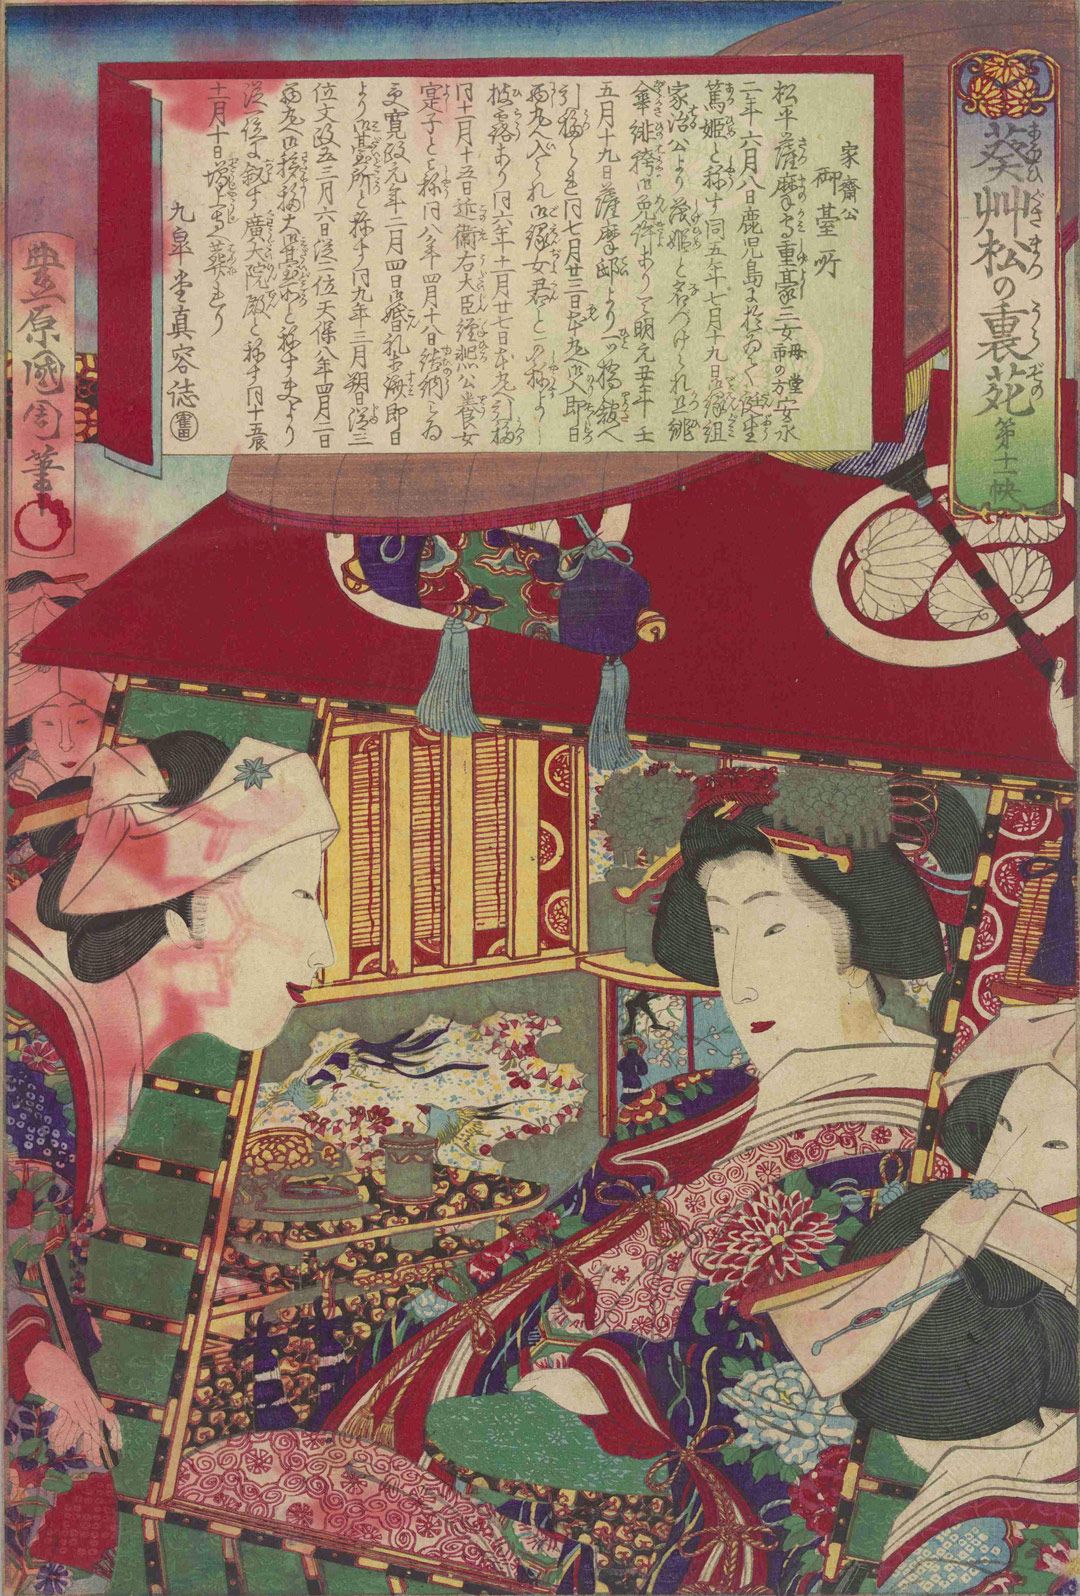 葵艸松の裏苑 第十一帙
家齋公
御䑓所
松平薩摩守重豪三女 市の方 安永
二年六月八日鹿児島に於ゐて誕生
篤姫と稱す同五年七月十九日縁組
家治公より茂姫と名づけられ且
傘緋袴御免仰ありて明元丑年壬
五月十九日薩摩邸より一ッ橋舘へ
引移られ同七月廿三日本丸へ御入即日
西丸へ入られ御縁女君と
披露あり同六年十一月廿七日本丸へ引移
同十一月十五日近衛右大臣經凞公養女
寔子と称同八年四月十八日結納
寛政元年二月四日御婚礼相済即日
より御䑓所と称す同九年三月朔日従三
位文政五三月六日従一位天保八年四月二日
西丸へ移 大御䑓所と称す夫より
従一位に叙す廣大院殿と称す
十一月十日増上寺に葬れり
九皐堂真容誌
豊原國周筆